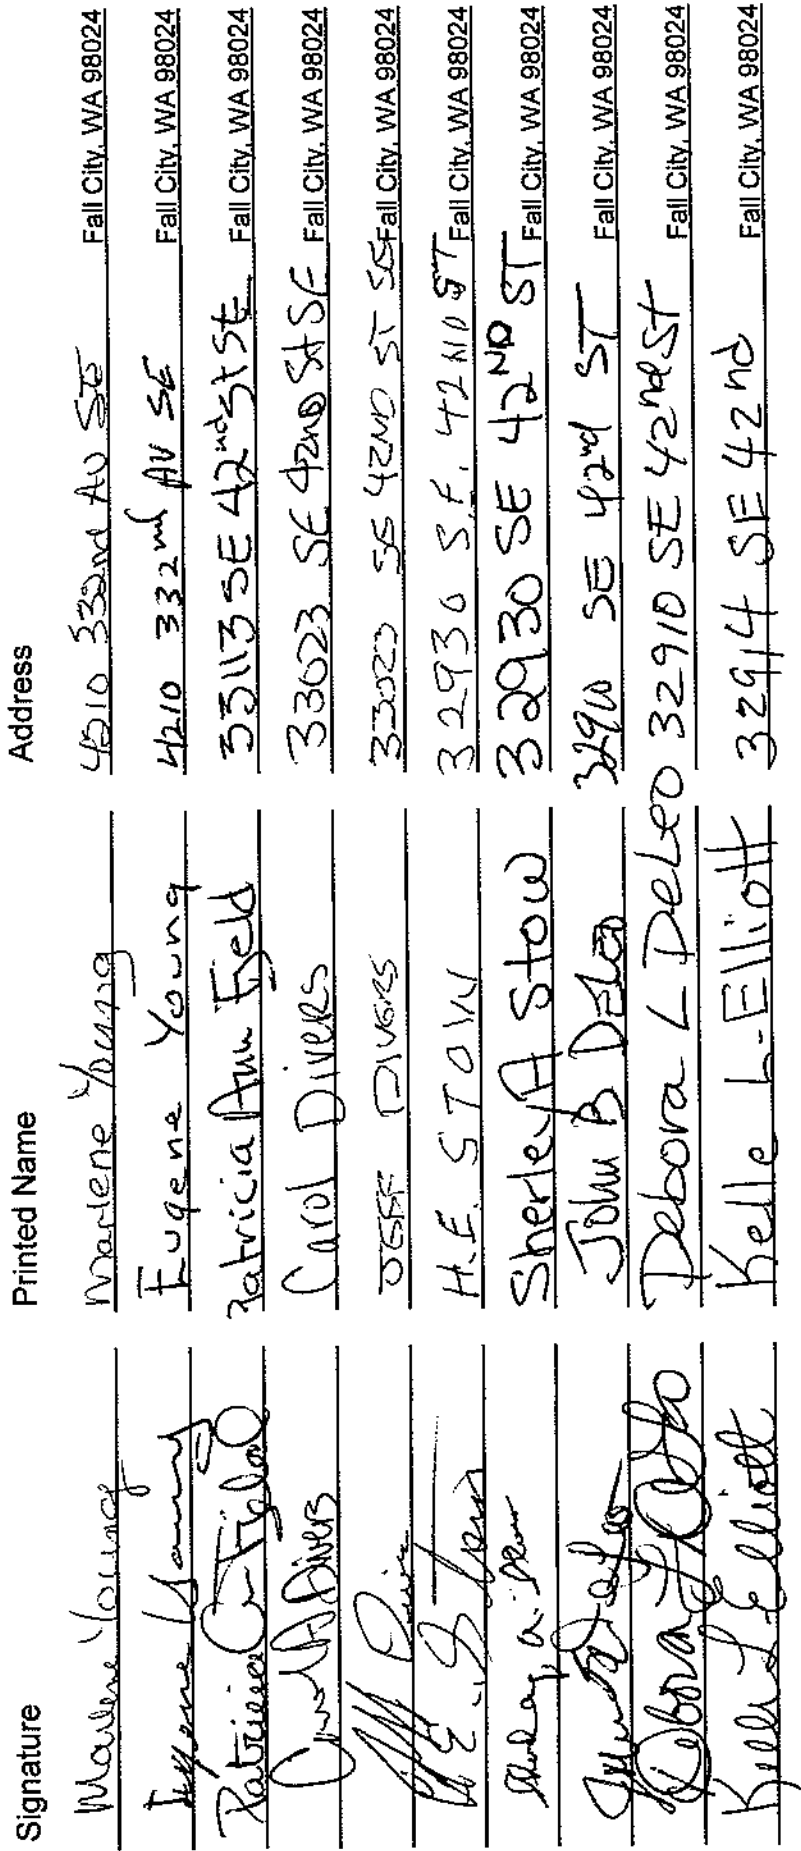 Signature Printed Name Address
Marlene Young Marlene Young 4210 332nd AV SE Fall City, WA 98024
Eugene Young Eugene Young 4210 332nd AV SE Fall City, WA 98024
Patricia Ann Field Patricia Ann Field 33113 SE 42nd St SE Fall City, WA 98024
Carol Divers Carol Divers 33023 SE 42ND St SE Fall City, WA 98024
JEFF DIVERS 33023 SE 42ND ST SE Fall City, WA 98024
H.E. Stow H.E. STOW 32930 S.E. 42ND ST Fall City, WA 98024
Sherley A Stow 32930 SE 42ND ST Fall City, WA 98024
John B DeLeo 32910 SE 42nd ST Fall City, WA 98024
Debora L DeLeo Debora L DeLeo 32910 SE 42nd St Fall City, WA 98024
Kelle L Elliott Kelle L. Elliott 32914 SE 42nd Fall City, WA 98024